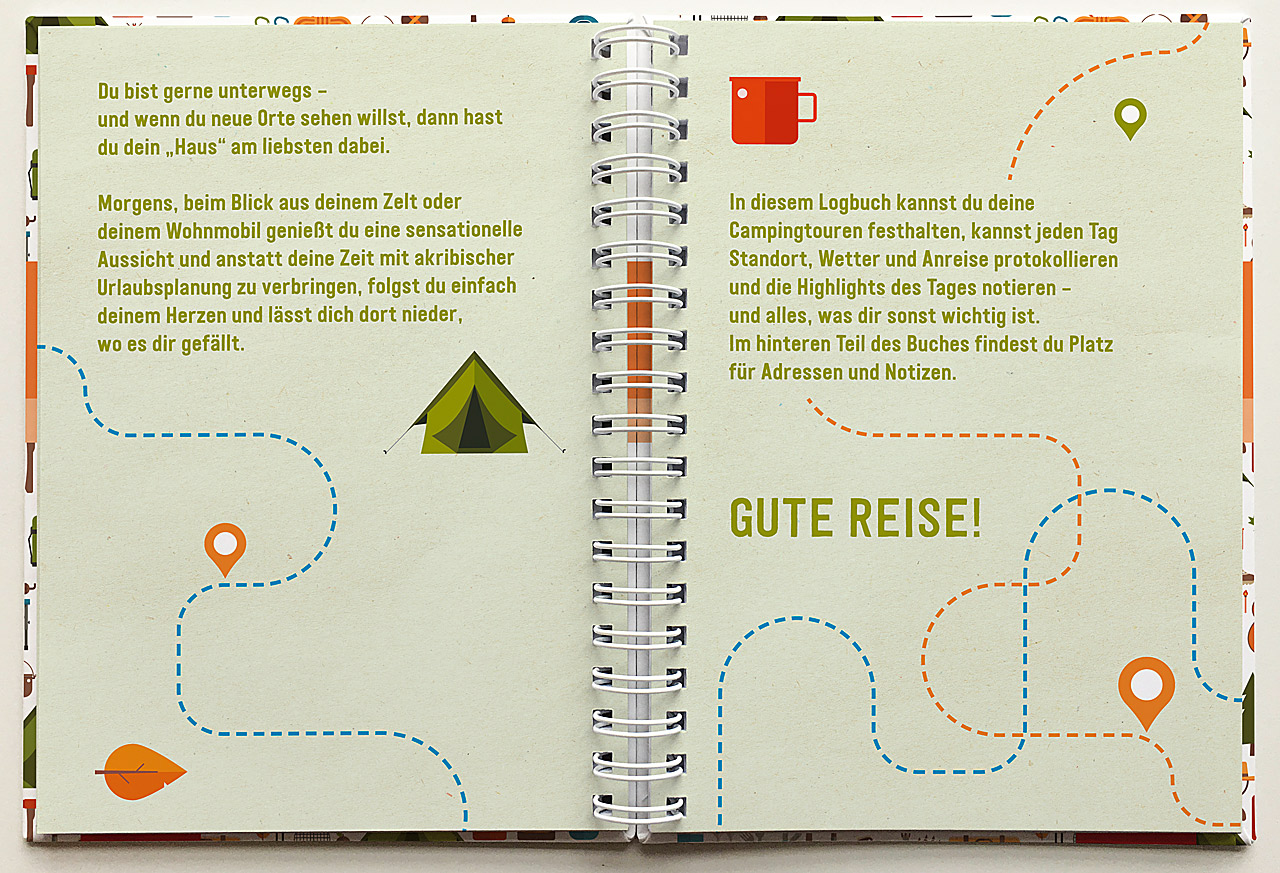 Du bist gerne unterwegs –
und wenn du neue Orte sehen willst, dann hast
du dein „Haus“ am liebsten dabei.
Morgens, beim Blick aus deinem Zelt oder
deinem Wohnmobil genießt du eine sensationelle
Aussicht und anstatt deine Zeit mit akribischer
Urlaubsplanung zu verbringen, folgst du einfach
deinem Herzen und lässt dich dort nieder,
wo es dir gefällt.
In diesem Logbuch kannst du deine
Campingtouren festhalten, kannst jeden Tag
Standort, Wetter und Anreise protokollieren
und die Highlights des Tages notieren –
und alles, was dir sonst wichtig ist.
Im hinteren Teil des Buches findest du Platz
für Adressen und Notizen.
GUTE REISE!